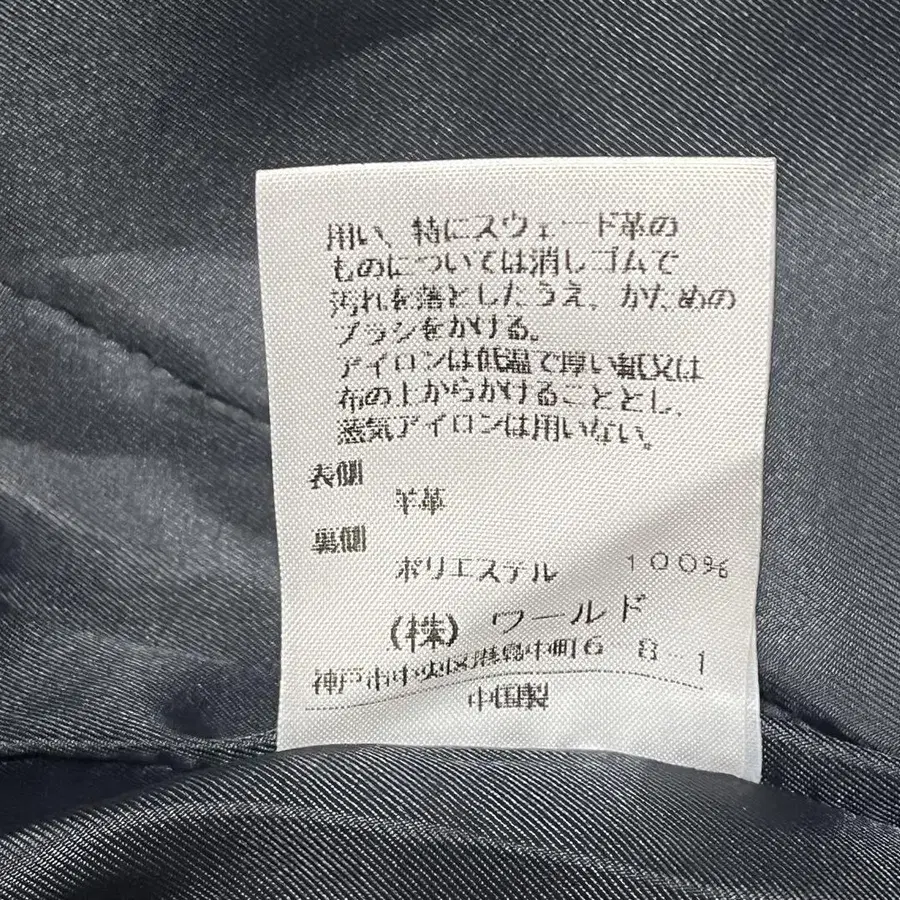 用い、特にスウェード革の
ものについては消しゴムで
汚れを落としたうえ、かためめの
ブラシをかける。
アイロンは低温で厚い紙又は
布の上からかけることとし、
蒸気アイロンは用いない。
表側
羊革
裏側
ポリエステル 100%
(株) ワールド
神戸市中央区港島中町6 8-1
中国製